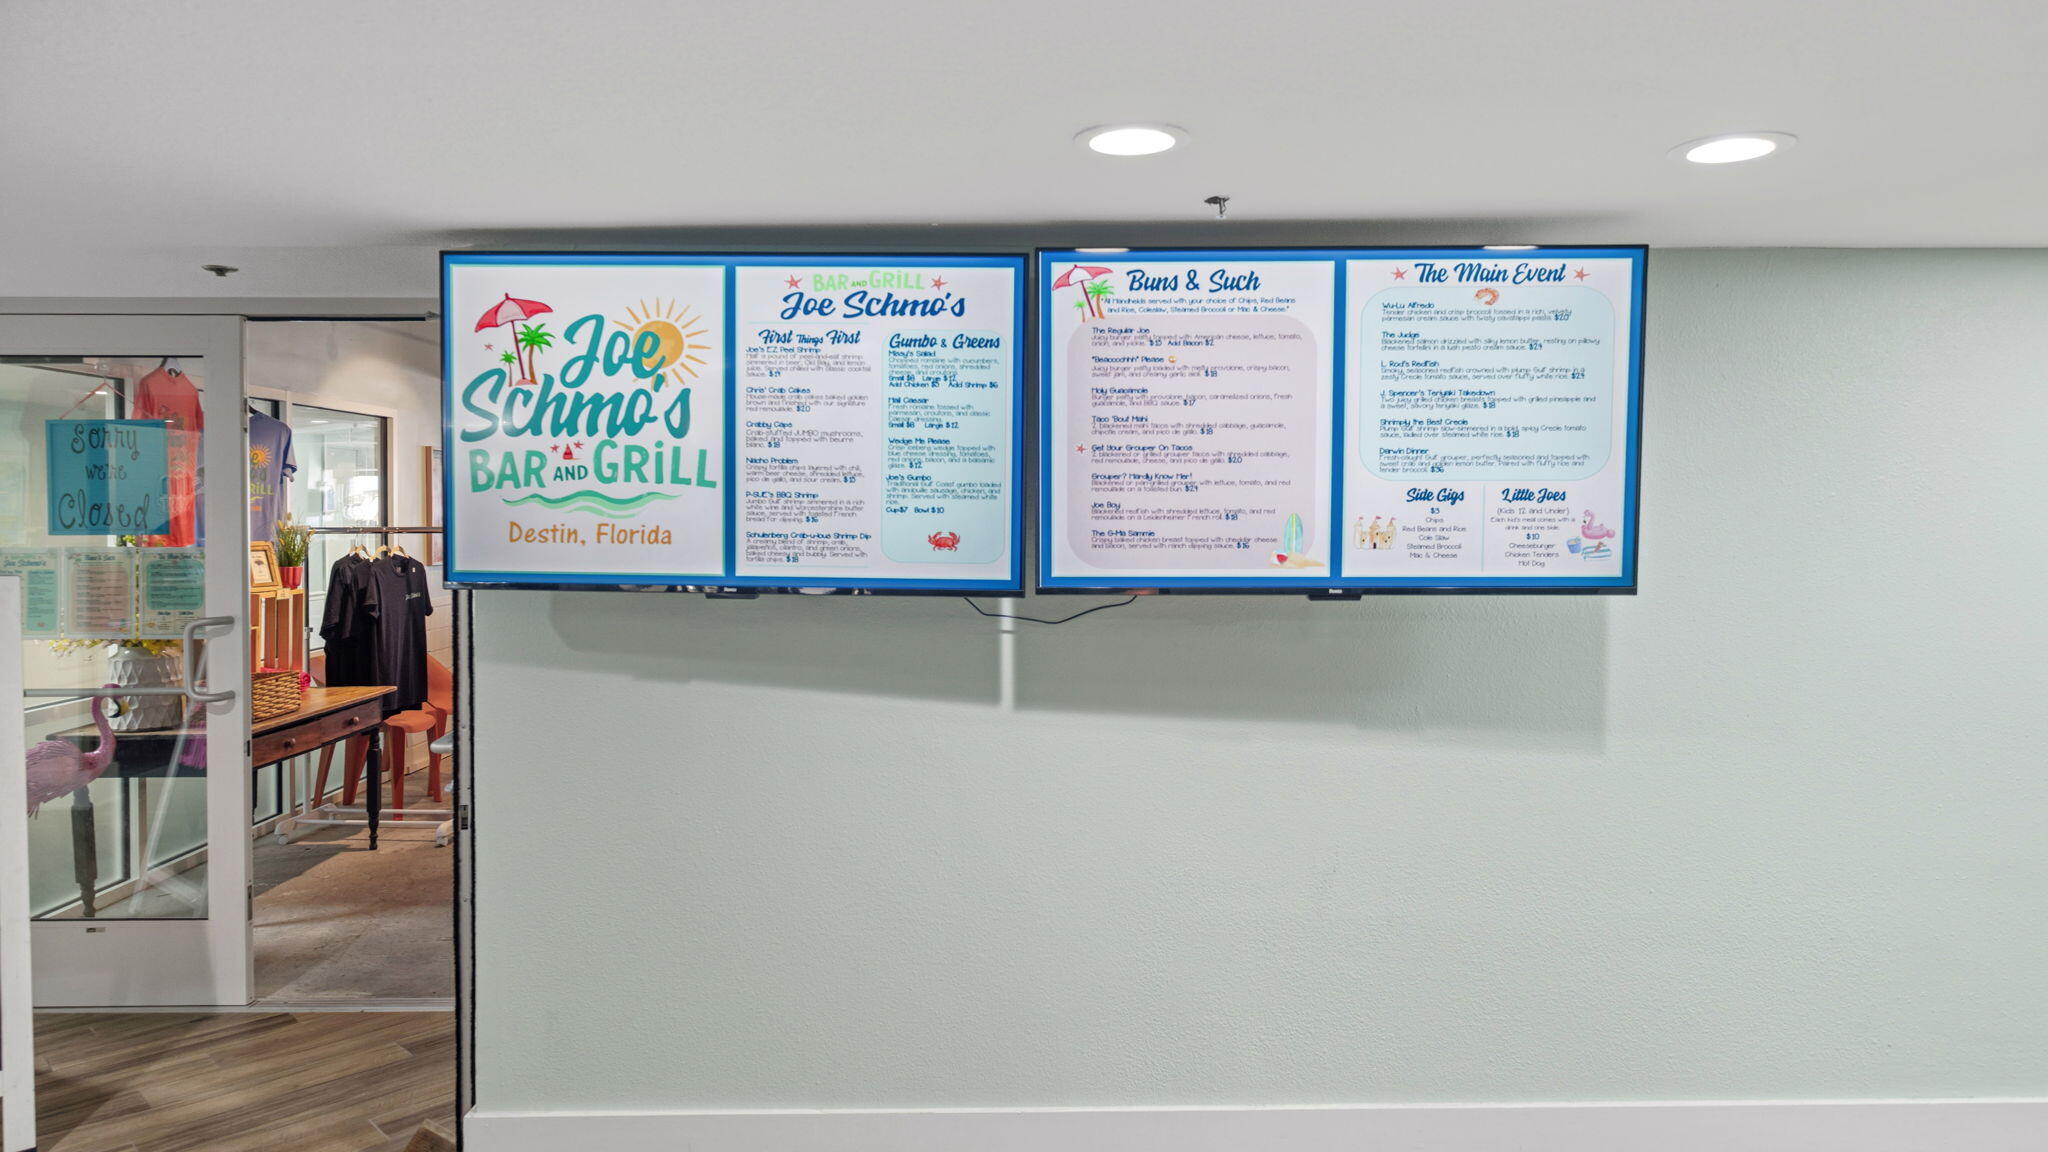 Sorry
we're
Closed
Joe
Schmo's
BAR AND GRILL
Destin, Florida
BAR AND GRILL
Joe Schmo's
First Things First
Joe's EZ Peel Shrimp
Half a pound of peel-and-eat shrimp
simmered in beer, Old Bay, and lemon
juice. Served chilled with classic cocktail
sauce. $14
Chris' Crab Cakes
House-made crab cakes baked golden
brown and finished with our signature
red remoulade. $20
Crabby Caps
Crab-stuffed JUMBO mushrooms,
baked and topped with beurre
blanc. $18
Nacho Problem
Crispy tortilla chips layered with chili,
warm beer cheese, shredded lettuce,
pico de gallo, and sour cream. $15
P-SUE's BBQ Shrimp
Jumbo Gulf shrimp simmered in a rich
white wine and Worcestershire butter
sauce, served with toasted French
bread for dipping. $16
Schulenberg Crab-u-lous Shrimp Dip
A creamy blend of shrimp, crab,
jalapeños, cilantro, and green onions,
baked cheesy and bubbly. Served with
tortilla chips. $18
Gumbo & Greens
Missy's Salad
Chopped romaine with cucumbers,
tomatoes, red onions, shredded
cheese, and croutons.
Small $8 Large $12
Add Chicken $5 Add Shrimp $6
Hail Caesar
Fresh romaine tossed with
parmesan, croutons, and classic
Caesar dressing.
Small $8 Large $12
Wedge Me Please
Crisp iceberg wedge topped with
blue cheese dressing, tomatoes,
red onions, bacon, and a balsamic
glaze. $12
Joe's Gumbo
Traditional Gulf Coast gumbo loaded
with andouille sausage, chicken, and
shrimp. Served with steamed white
rice.
Cup $7 Bowl $10
Buns & Such
*All Handhelds served with your choice of Chips, Red Beans
and Rice, Coleslaw, Steamed Broccoli or Mac & Cheese.*
The Regular Joe
Juicy burger patty topped with American cheese, lettuce, tomato,
onion, and pickle. $15 Add Bacon $2
"Beaccochhh" Please
Juicy burger patty loaded with melty provolone, crispy bacon,
sweet jam, and creamy garlic aioli. $18
Holy Guacamole
Burger patty with provolone, bacon, caramelized onions, fresh
guacamole, and BBQ sauce. $17
Taco 'Bout Mahi
2 blackened mahi tacos with shredded cabbage, guacamole,
chipotle cream, and pico de gallo. $18
Get Your Grouper On Tacos
2 blackened or grilled grouper tacos with shredded cabbage,
red remoulade, cheese, and pico de gallo. $20
Grouper? Hardly Know Her!
Blackened or pan-grilled grouper with lettuce, tomato, and red
remoulade on a toasted bun. $24
Joe Boy
Blackened redfish with shredded lettuce, tomato, and red
remoulade on a Leidenheimer French roll. $18
The G-Ma Sammie
Crispy baked chicken breast topped with cheddar cheese
and bacon, served with ranch dipping sauce. $16
The Main Event
Wu-Lu Alfredo
Tender chicken and crisp broccoli tossed in a rich, velvety
parmesan cream sauce with twisty cavatappi pasta. $20
The Judge
Blackened salmon drizzled with silky lemon butter, resting on pillowy
cheese tortellini in a lush pesto cream sauce. $24
L. Rod's Redfish
Smoky, seasoned redfish crowned with plump Gulf shrimp in a
zesty Creole tomato sauce, served over fluffy white rice. $24
J. Spencer's Teriyaki Takedown
Two juicy grilled chicken breasts topped with grilled pineapple and
a sweet, savory teriyaki glaze. $18
Shrimply the Best Creole
Plump Gulf shrimp slow-simmered in a bold, spicy Creole tomato
sauce, ladled over steamed white rice. $18
Darwin Dinner
Fresh-caught Gulf grouper, perfectly seasoned and topped with
sweet crab and golden lemon butter. Paired with fluffy rice and
tender broccoli. $36
Side Gigs
$3
Chips
Red Beans and Rice
Cole Slaw
Steamed Broccoli
Mac & Cheese
Little Joes
(Kids 12 and Under)
Each kid's meal comes with a
drink and one side.
$10
Cheeseburger
Chicken Tenders
Hot Dog